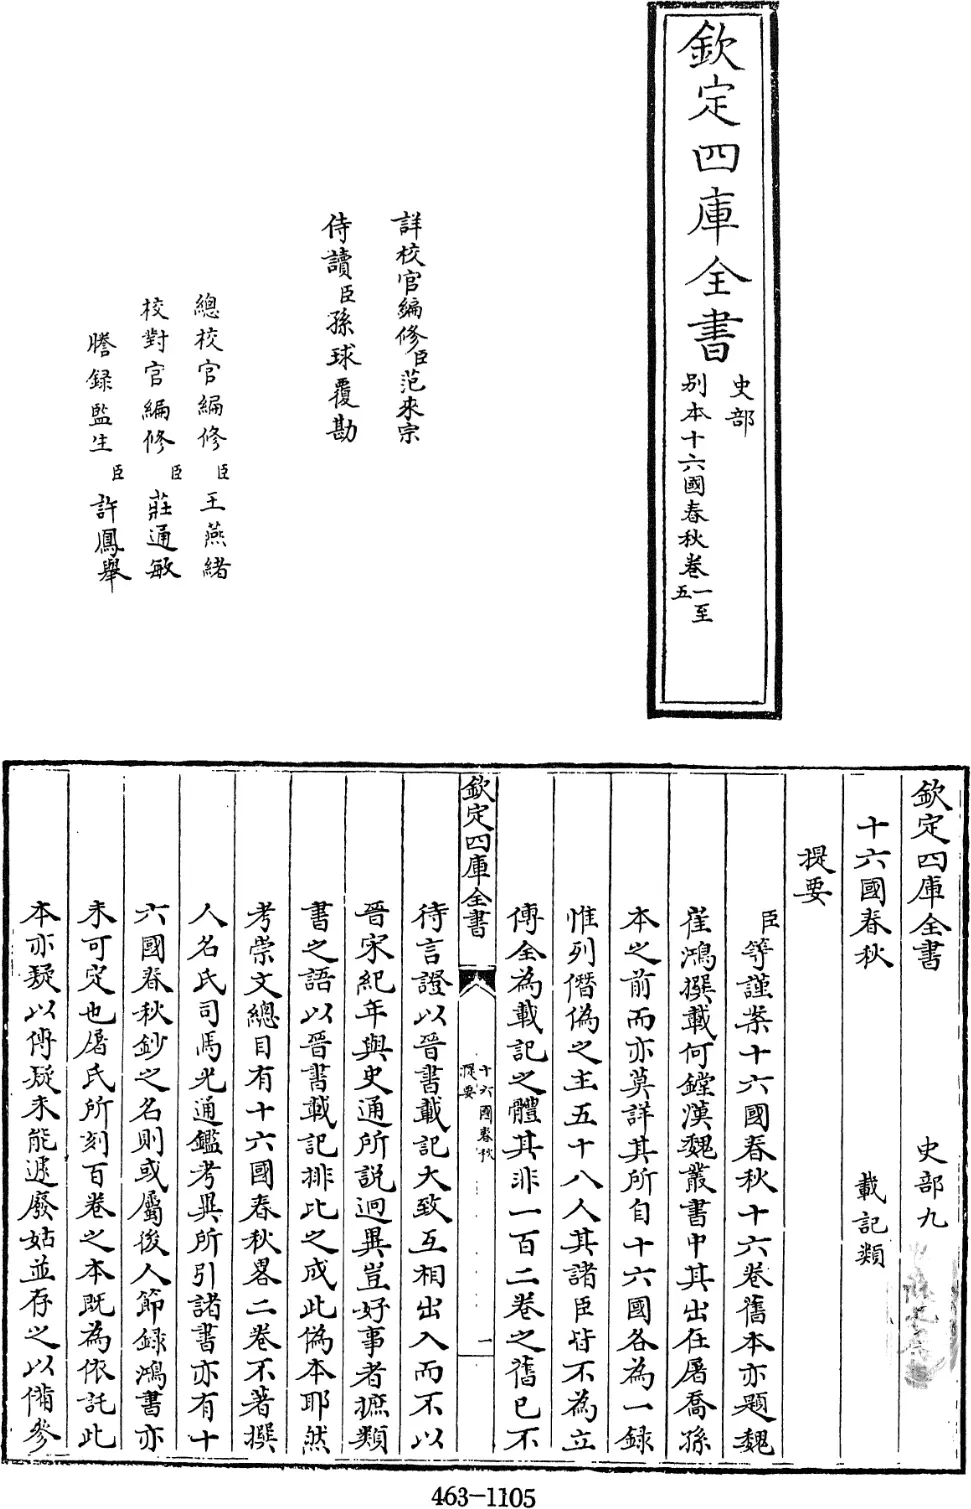 欽定四庫全書
史部
别本十六國春秋卷一至五
詳校官編修臣范來宗
侍讀臣孫球覆勘
總校官編修臣王燕緒
校對官編修臣莊通敏
謄録監生臣許鳳舉
欽定四庫全書 史部九
十六國春秋 載記類
提要
臣等謹案十六國春秋十六卷舊本亦題魏
崔鴻撰載何鏜漢魏叢書中其出在屠喬孫
本之前而亦莫詳其所自十六國各為一録
惟列僭偽之主五十八人其諸臣皆不為立
傳全為載記之體其非一百二卷之舊已不
欽定四庫全書
十六國春秋
提要
一
待言證以晉書載記大致互相出入而不以
晉宋紀年與史通所説迥異豈好事者摭類
書之語以晉書載記排比之成此偽本耶然
考崇文總目有十六國春秋畧二卷不著撰
人名氏司馬光通鑑考異所引諸書亦有十
六國春秋鈔之名則或屬後人節録鴻書亦
未可定也屠氏所刻百卷之本既為依託此
本亦疑以傳疑未能遽廢姑並存之以備參
463-1105